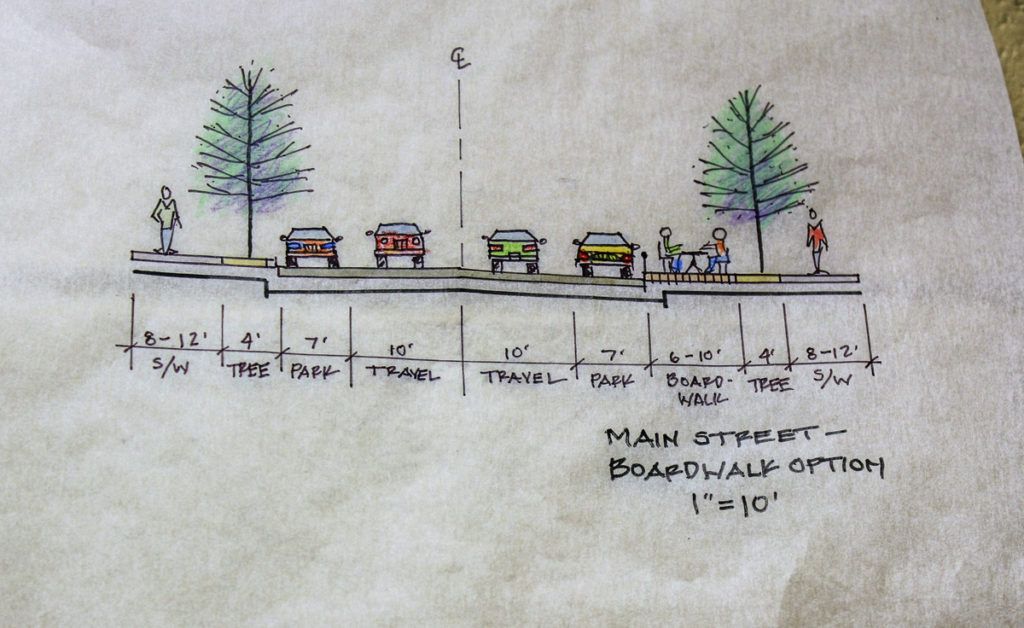 ℄
8-12' 4' 7' 10' 10' 7' 6-10' 4' 8-12'
S/W TREE PARK TRAVEL TRAVEL PARK BOARD- TREE S/W
WALK
MAIN STREET-
BOARDWALK OPTION
1"=10'